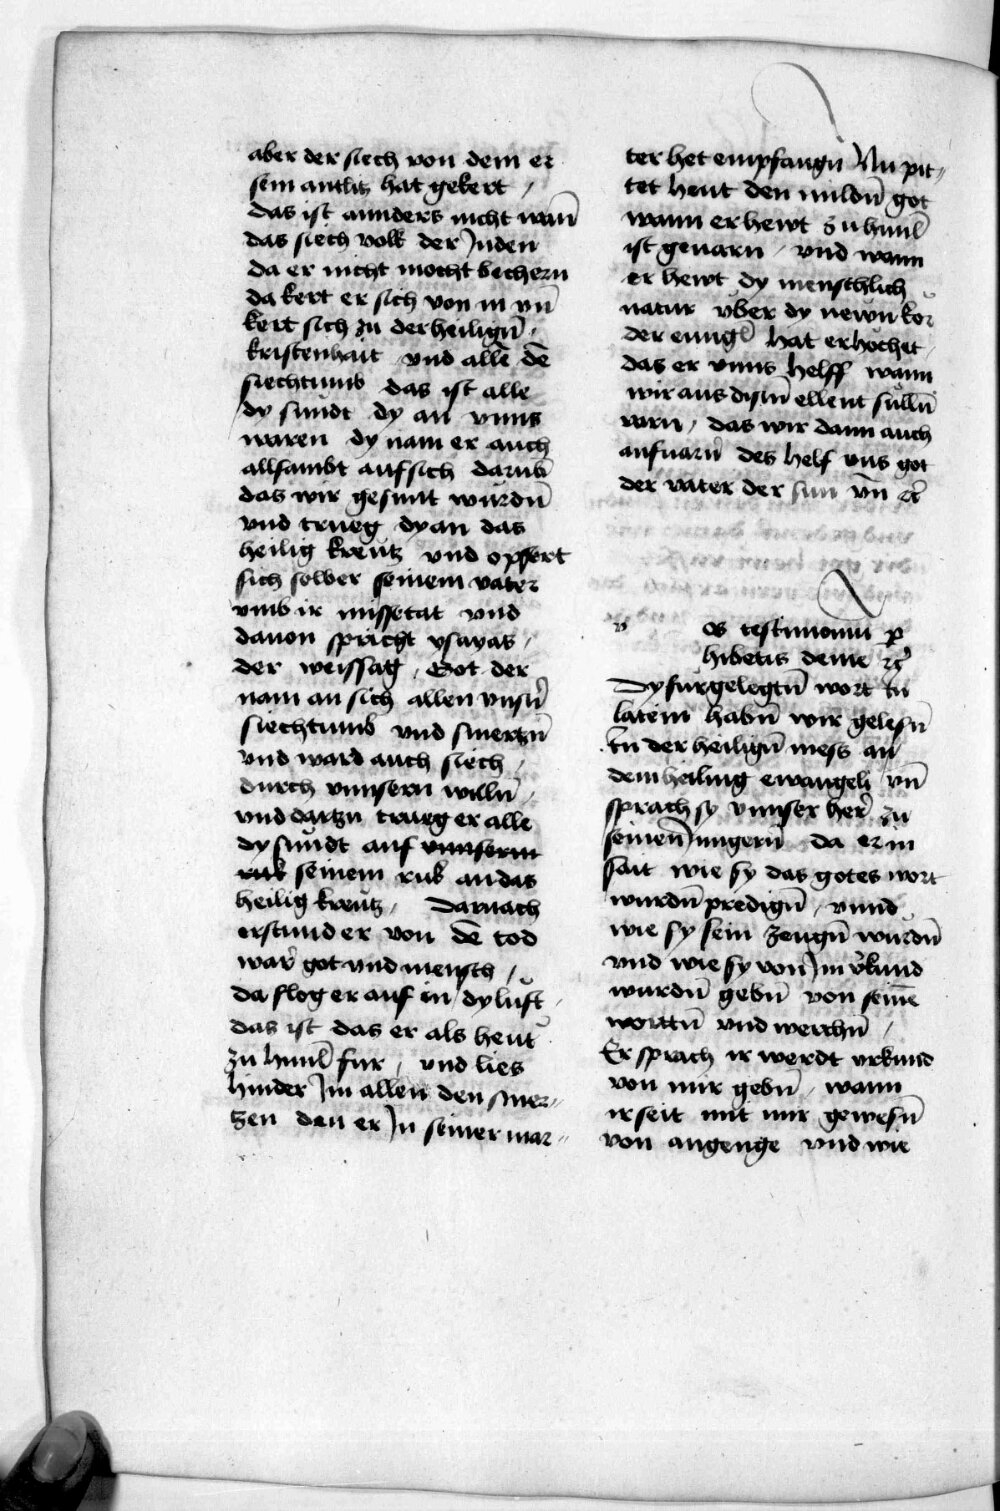 aber der siech von dem er
sein antlitz hat gekert /
das ist annders nicht wan̄
das siech volk der Juden
da er nicht mocht bechern
da kert er sich von in vn̄
kert sich zu der heilign̄ /
kristenhait / vnd alln̄ dē
siechtumb das ist alle
dy sundt dy an vnns
waren dy nam er auch
allsambt auf sich darūb
das wir gesunt wurdn̄
vnd trueg dy an das
heilig kreutz vnd opffert
sich selber seinem vater
vmb ir missetat vnd
dauon spricht ysayas /
der weissag / Got der
nam an sich allen vnsn̄
siechtumb vnd smertzn̄
vnd ward auch siech /
durch vnnsern willn̄ /
vnd dartzu trueg er alle
dy sundt auf vnnserm
ruk seinem ruk an das
heilig kreutz / Darnach
erstund er von dē tod
war̄ got vnd mensch /
da flog er auf in dy lufft /
das ist das er als heut
zu himl̄ fur / vnd lies
hinder Im allen den smer-
tzen den er In seiner mar-
ter het empfangn̄ Nu pit-
tet heut den mildn̄ got
wann er hewt zu himl̄
ist geuarn / vnd wann
er hewt dy menschlich
natur vber dy newn kor
der enngl̄ hat erhöchet /
das er vnns helff wann
wir aus dism̄ ellent sulln̄
varn / das wir dann auch
aufuarn̄ des helf vns got
der vater der sun vn̄ etc̄
v os testimoniu p
hibetis de me etc̄
Dy furgelegtn̄ wort tzu
latein habn̄ wir gelesn̄
In der heilign̄ mess an
dem heiling ewangelj vn̄
sprach sy vnnser her̄ zu
seinen̄ Jungern̄ da er in
sait wie sy das gotes wort
wurdn̄ predign̄ / vnnd
wie sy sein zeugn̄ wurdn̄
vnd wie sy von Im vrkund
wurdn̄ gebn̄ von seinē
worttn̄ vnd werchn̄ /
Er sprach ir werdt vrkund
von mir gebn̄ / wann
ir seit mit mir gewesn̄
von angenge vnd wie